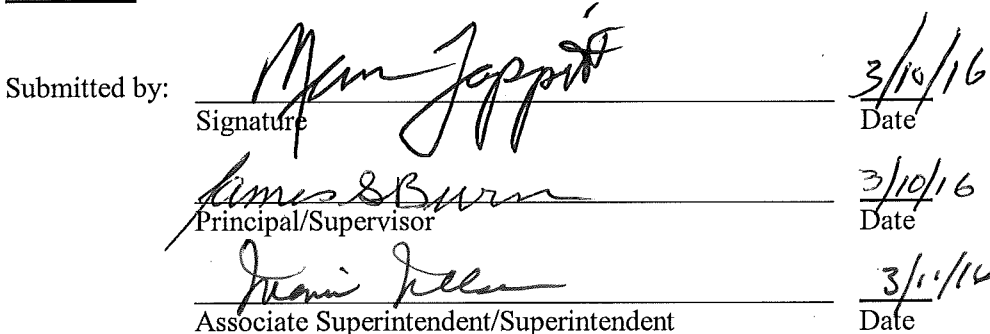 Submitted by: 3/10/16
Signature Date
James S Burn 3/10/16
Principal/Supervisor Date
3/11/16
Associate Superintendent/Superintendent Date